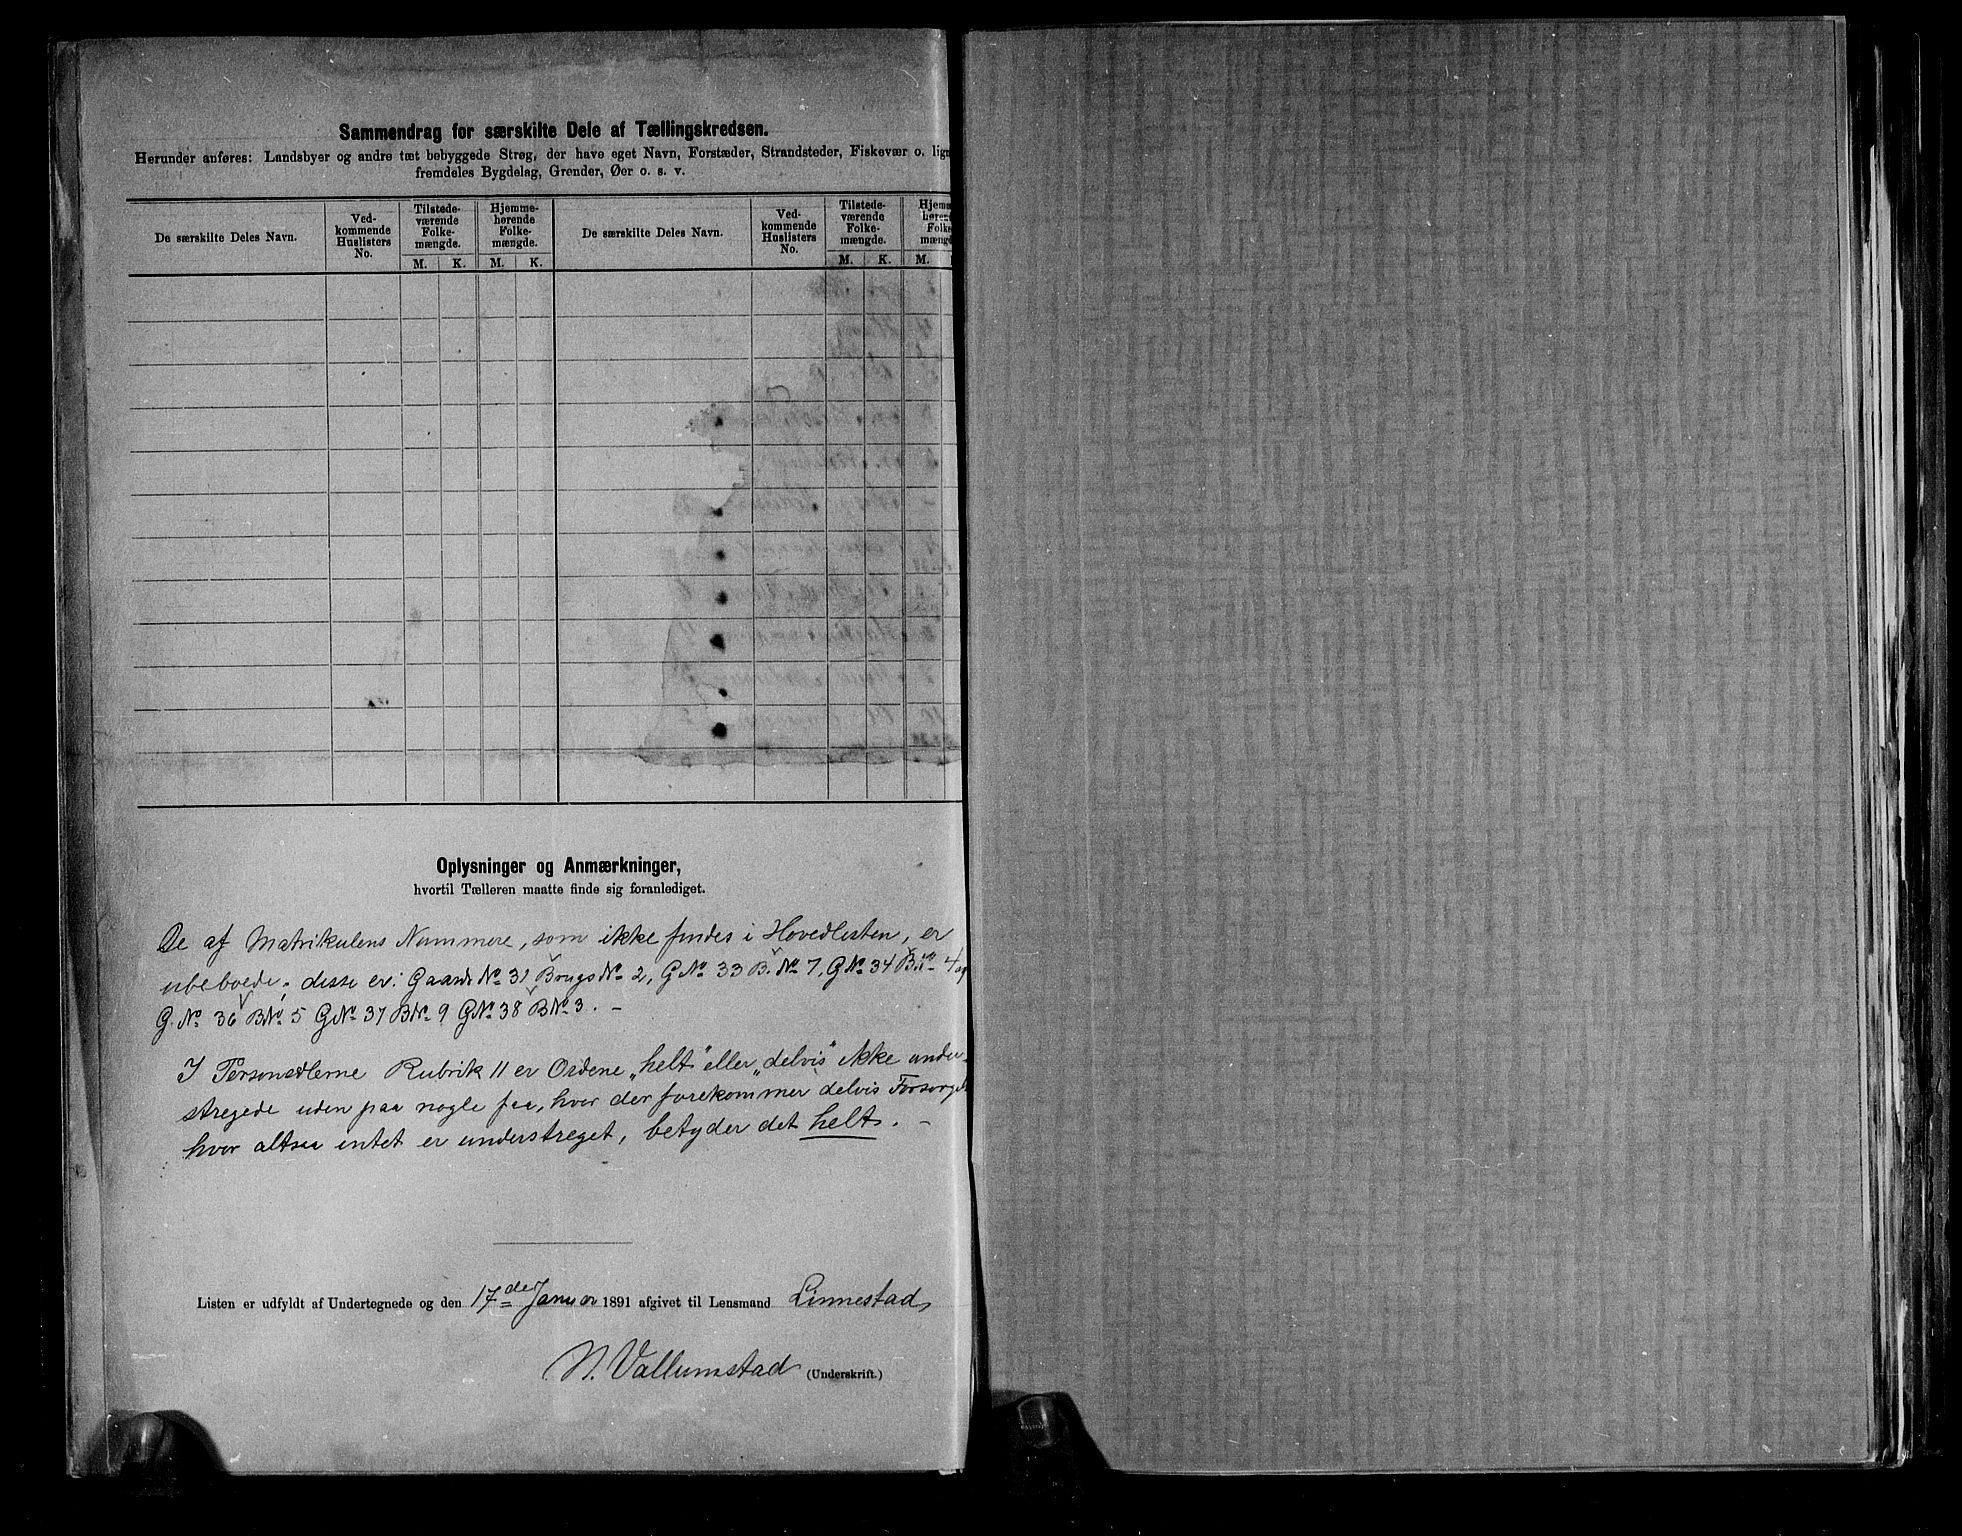 Sammendrag for særskilte Dele af Tællingskredsen.
Herunder anføres: Landsbyer og andre tæt bebyggede Strøg, der have eget Navn, Forstæder, Strandsteder, Fiskevær o. lign
fremdeles Bygdelag, Grender, Øer o. s. v.
De særskilte Deles Navn.
Ved-
kommende
Huslisters
No.
Tilstede-
værende
Folke-
mængde.
Hjemme-
hørende
Folke-
mængde.
De særskilte Deles Navn.
Ved-
kommende
Huslisters
No.
Tilstede-
værende
Folke-
mængde.
Hjemm
hørend
Folke
mængd
M. K. M. K. M. K. M.
Oplysninger og Anmærkninger,
hvortil Tælleren maatte finde sig foranlediget.
De af Matrikulens Nummere, som ikke findes i Hovedlisten, er
ubeboede; disse er: Gaards No. 31 Brugs No. 2, G No. 33 B. No. 7, G No. 34 B. No. 4 og
G. No. 36 B No. 5 G No. 37 B No. 9 G No. 38 B No. 3. —
I Personsedlerne Rubrik 11 er Ordene „helt" eller „delvis" ikke under-
stregede uden paa nogle faa, hvor der forekommer delvis Forsørgels
hvor altsaa intet er understreget, betyder det helt. —
Listen er udfyldt af Undertegnede og den 17de Januar 1891 afgivet til Lensmand Linnestad
N. Vallumstad (Underskrift.)